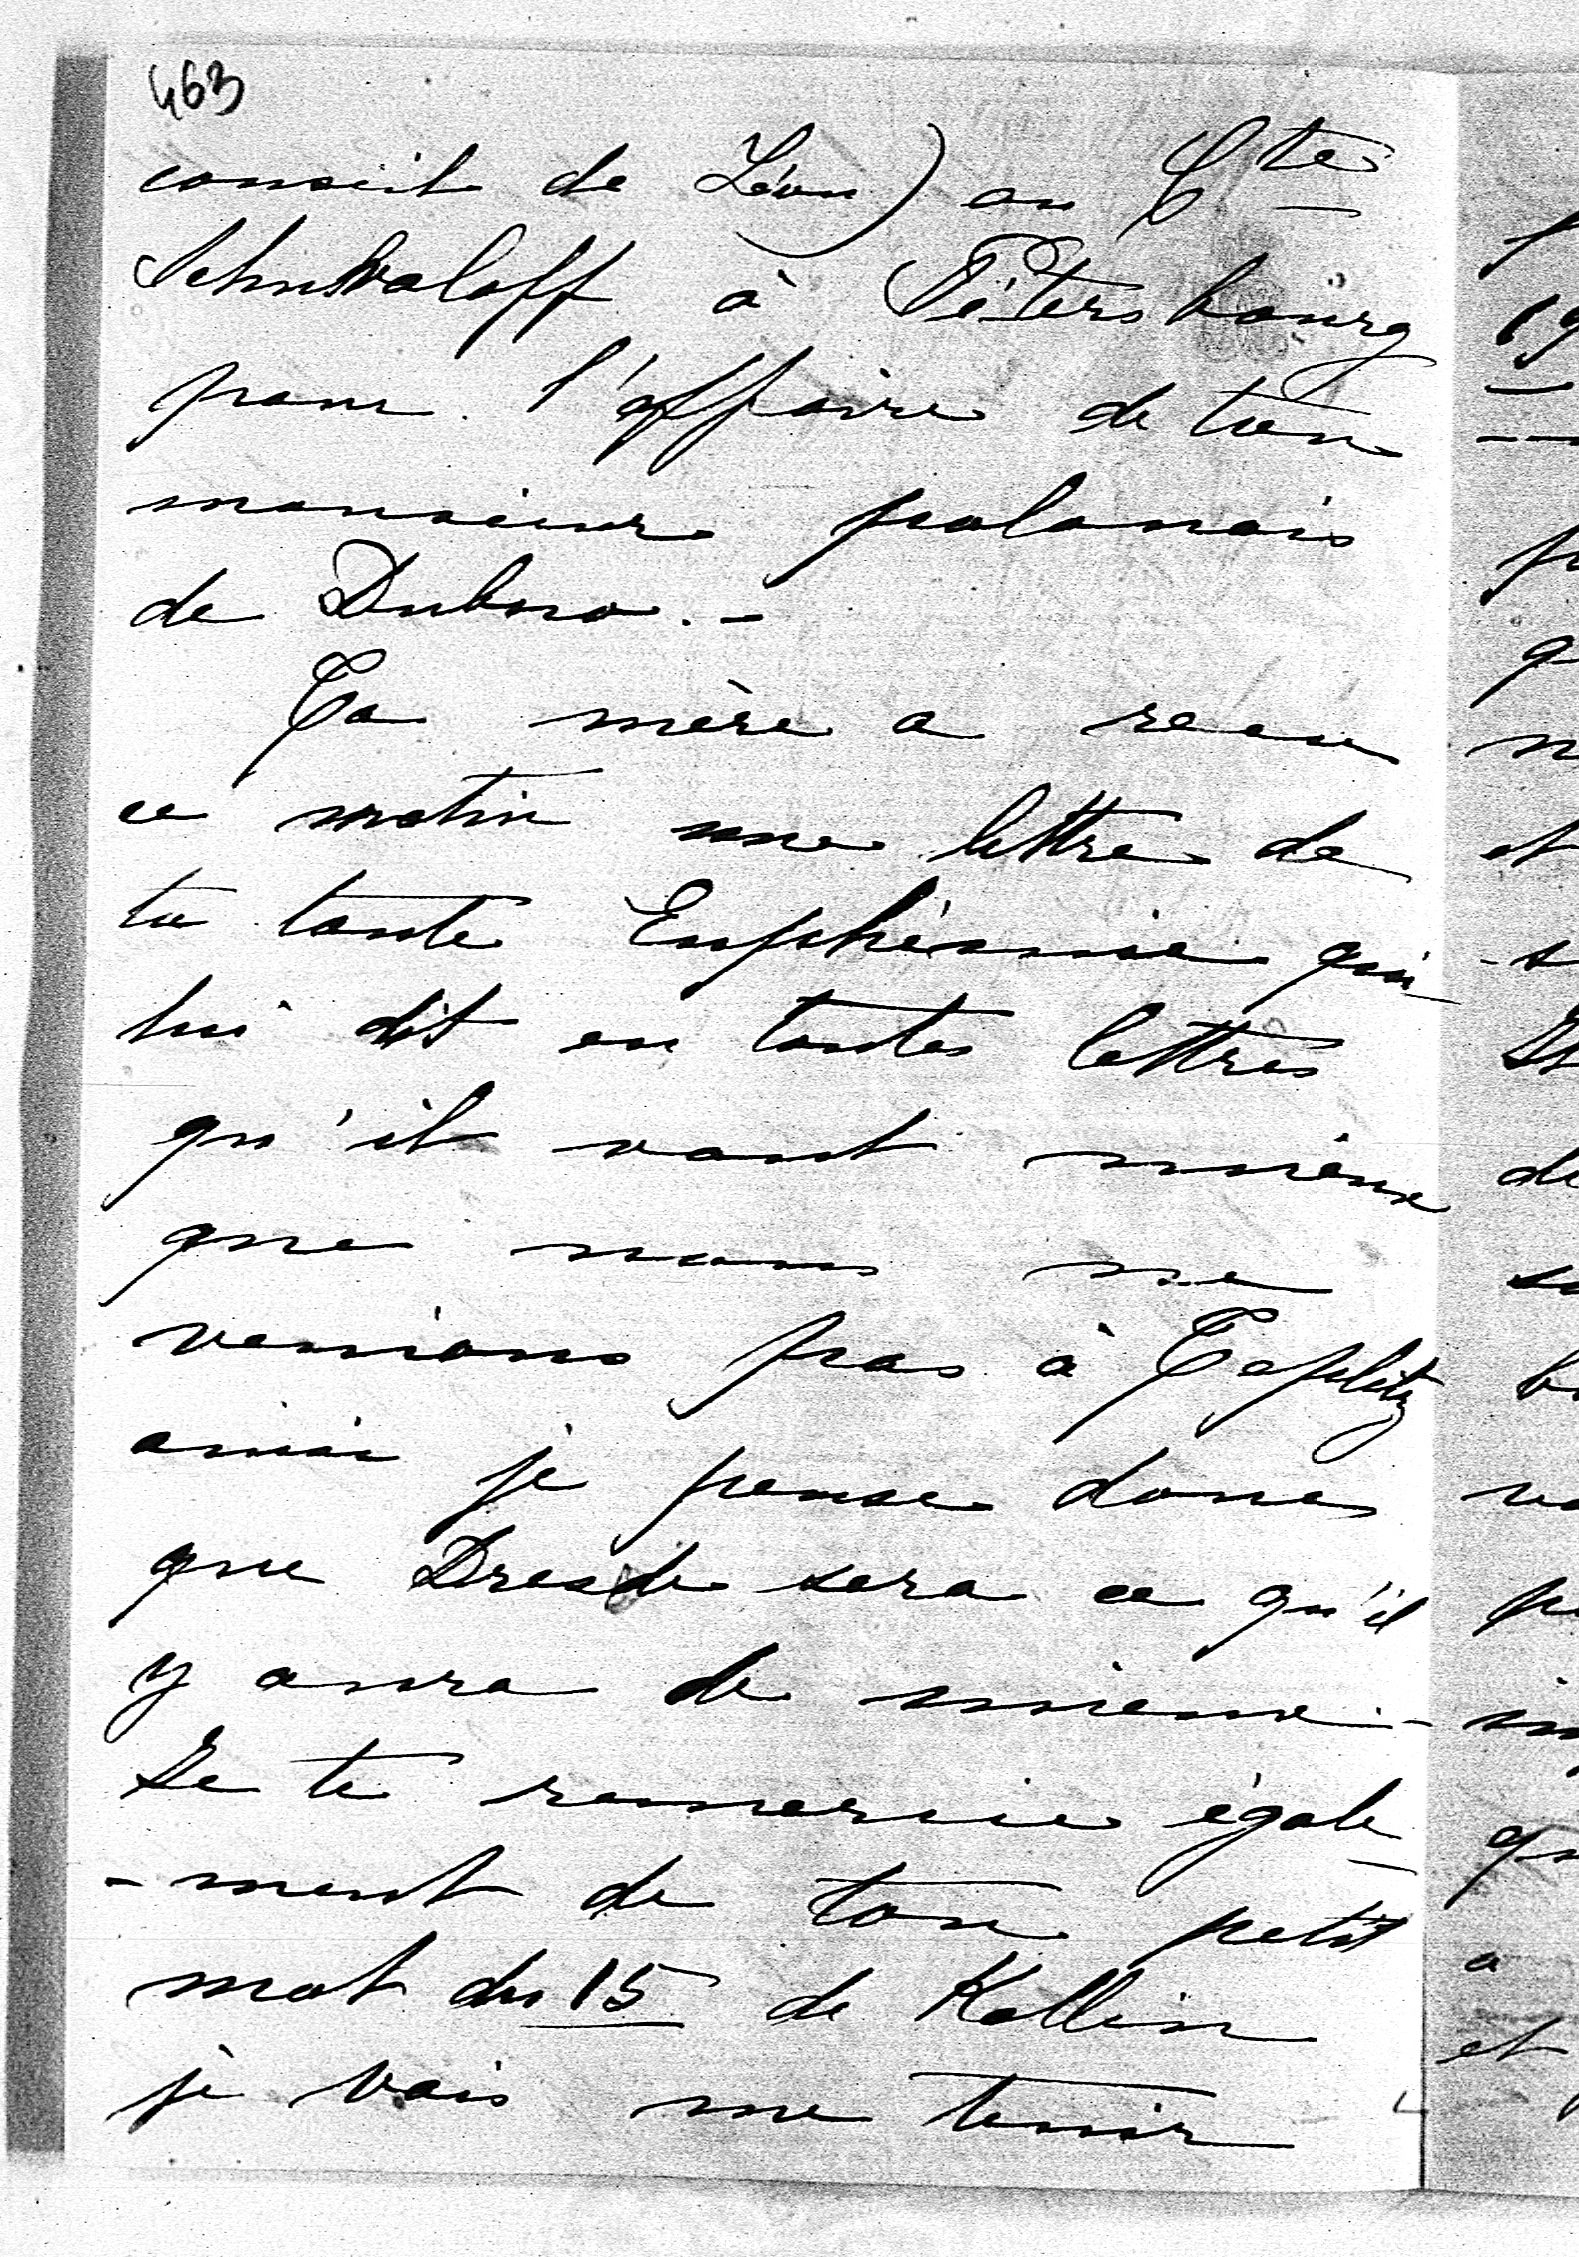 463
conseil de Léon) au Cte
Schuvaloff à Pétersbourg
pour l'affaire de ton
monsieur polonais
de Dubno. -
Ta mère a recu
ce matin une lettre de
ta tante Euphémie qui
lui dit en toutes lettres
qu'il vaut mieux
que nous ne
venions pas à Teplitz
ainsi je pense donc
que Dresde sera ce qu'il
y aura de mieux. -
Je te remercie égale
-ment de ton petit
mot du 15 de Kollin
je vais me tenir